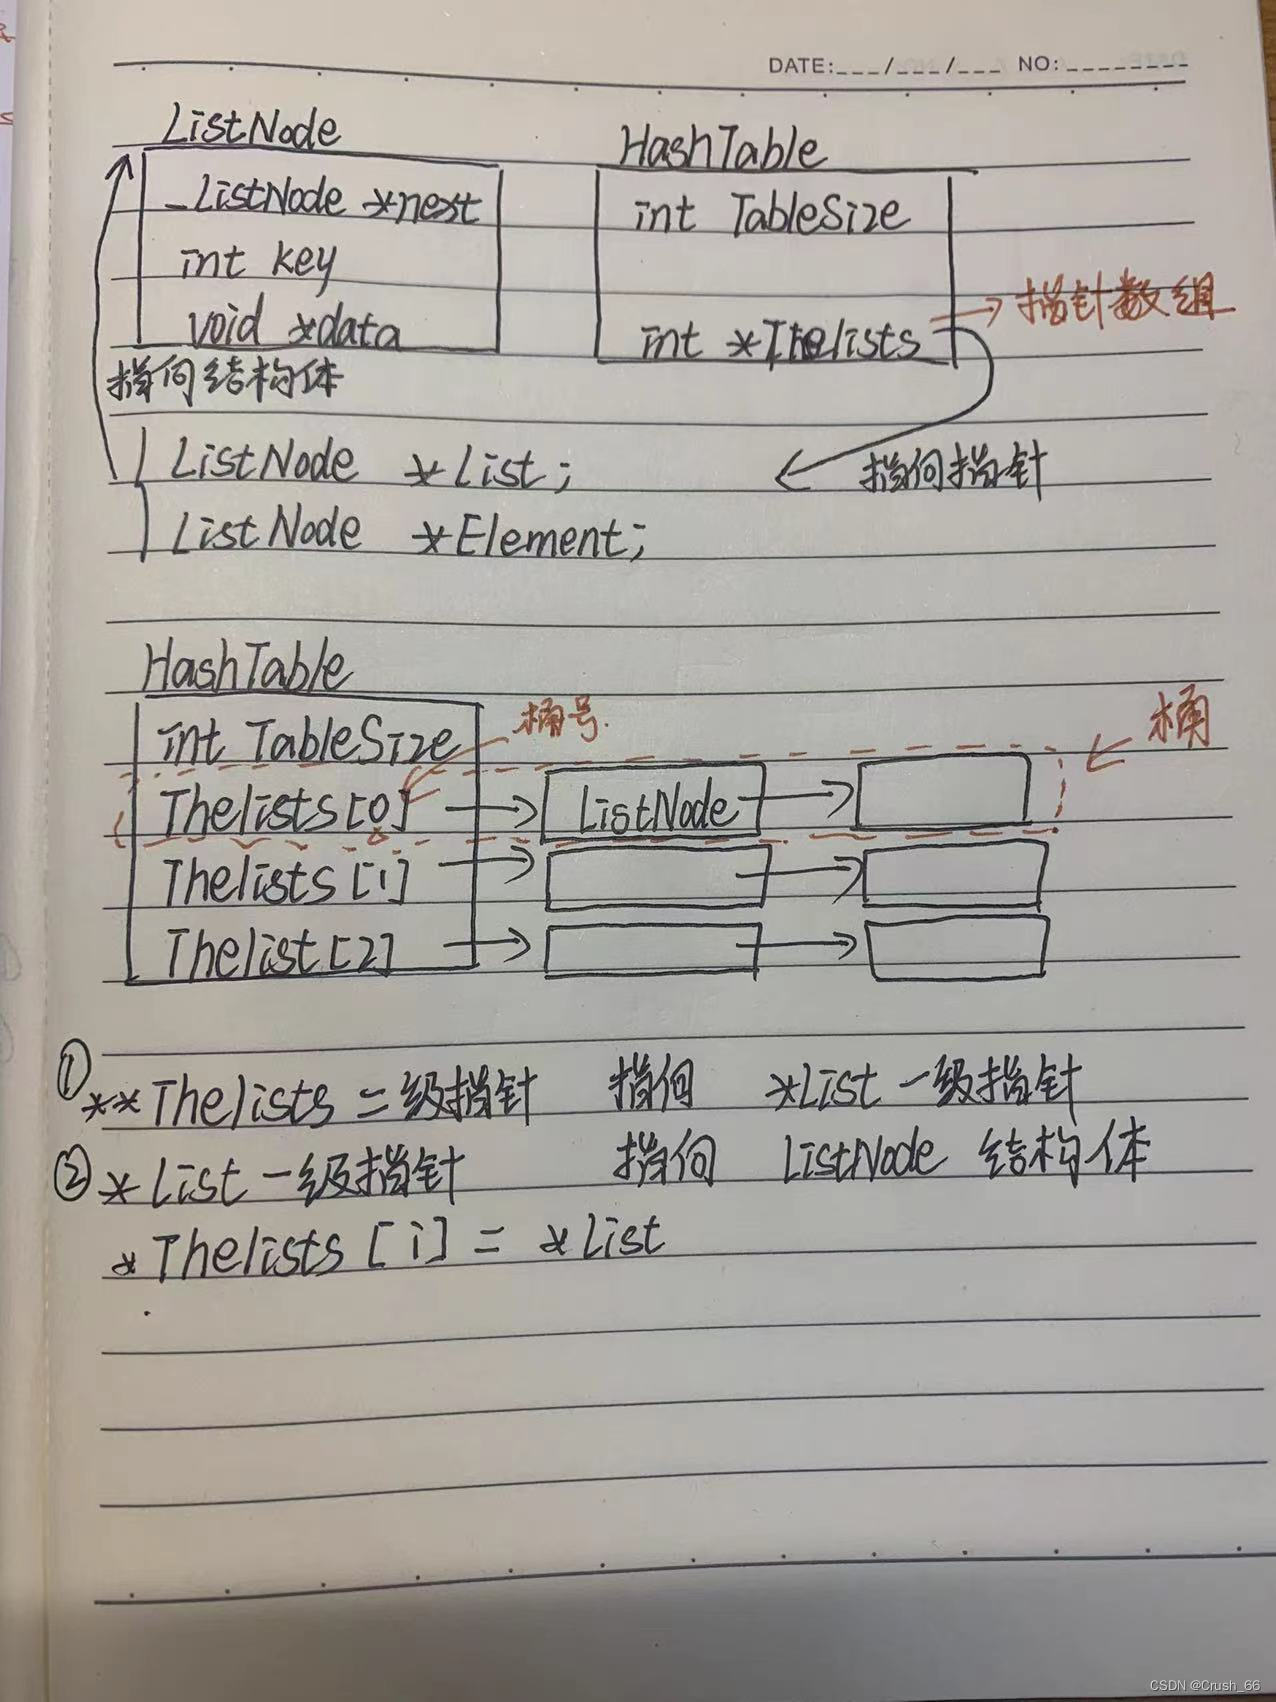 DATE:___/___/___ NO:________
ListNode
_ListNode *next
int key
void *data
HashTable
int TableSize
int *Thelists
指针数组
指向结构体
ListNode *List;
指向指针
ListNode *Element;
HashTable
int TableSize
桶号.
桶
Thelists[0]
ListNode
Thelists[1]
Thelist[2]
① **Thelists 二级指针 指向 *List 一级指针
② *List 一级指针 指向 ListNode 结构体
*Thelists[i] = *List
CSDN @Crush_66